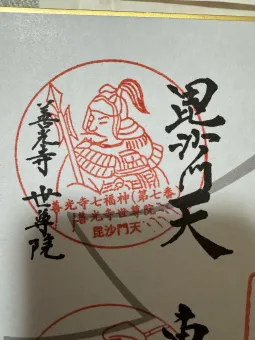 毘沙門天
善光寺七福神(第七番)
善光寺世尊院
毘沙門天
善光寺 世尊院